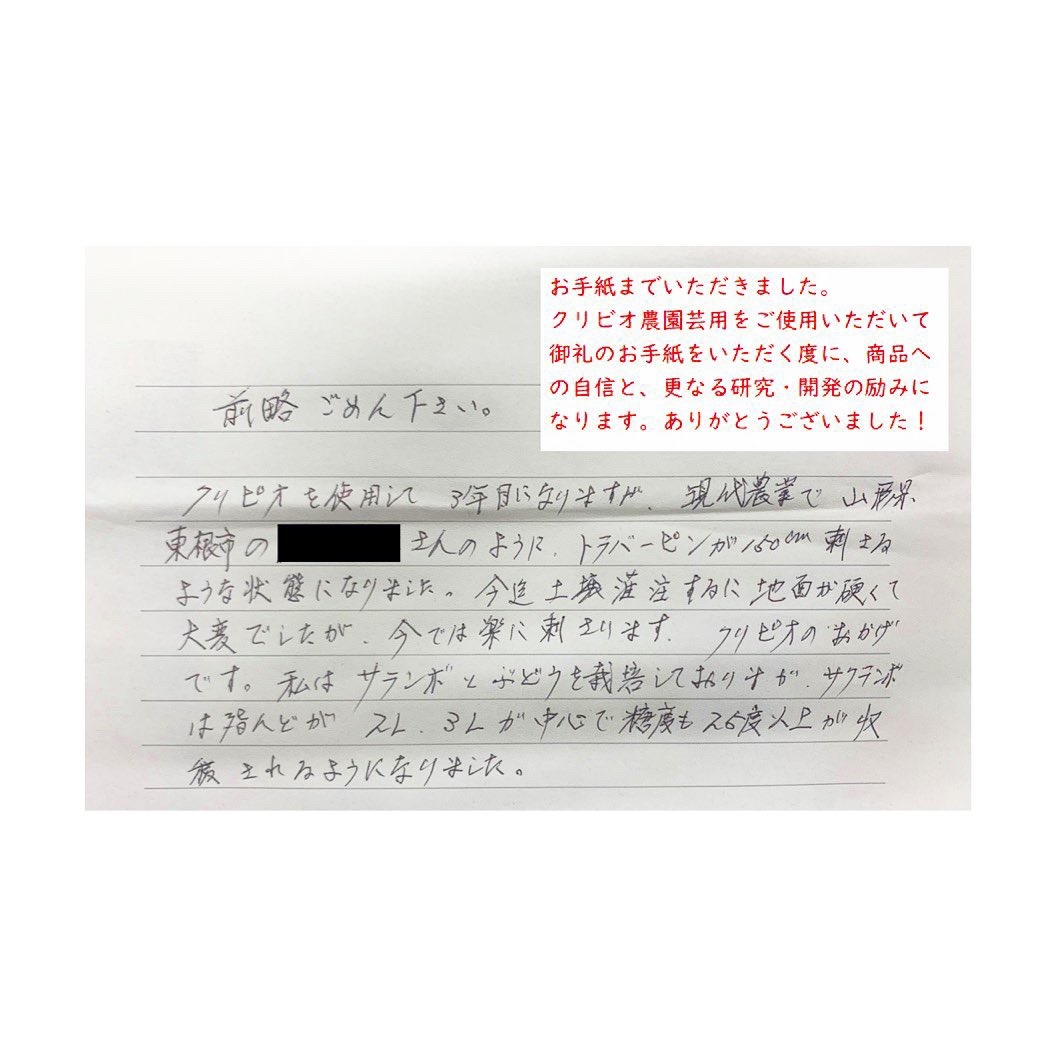 お手紙までいただきました。
クリビオ農園芸用をご使用いただいて
御礼のお手紙をいただく度に、商品へ
の自信と、更なる研究・開発の励みに
なります。ありがとうございました！
前略ごめん下さい。
クリビオを使用して 3年目になりますが、現代農業で 山形県
東根市の さんのように、トラバーピンが150cm 刺さる
ような状態になりました。今迄土壌灌注するに地面が硬くて
大変でしたが、今では楽に刺さります。クリビオのおかげ
です。私はサランボとぶどうを栽培しておりますが、サクランボ
は殆んどが 2L、3Lが中心で糖度も25度以上が収
穫されるようになりました。